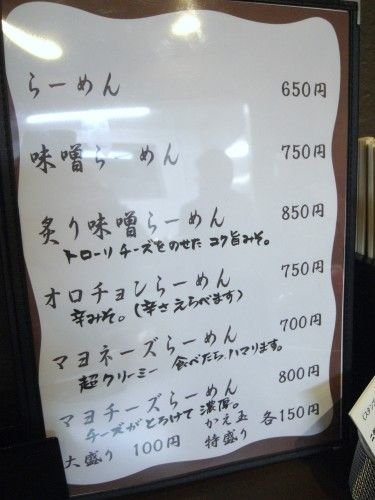 らーめん 650円
味噌らーめん 750円
炙り味噌らーめん 850円
トローリチーズをのせた コク旨みそ。
オロチョンらーめん 750円
辛みそ。(辛さえらべます)
マヨネーズらーめん 700円
超クリーミー 食べたら、ハマります。
マヨチーズらーめん 800円
チーズがとろけて 濃厚。
大盛り 100円 かえ玉 特盛り 各150円